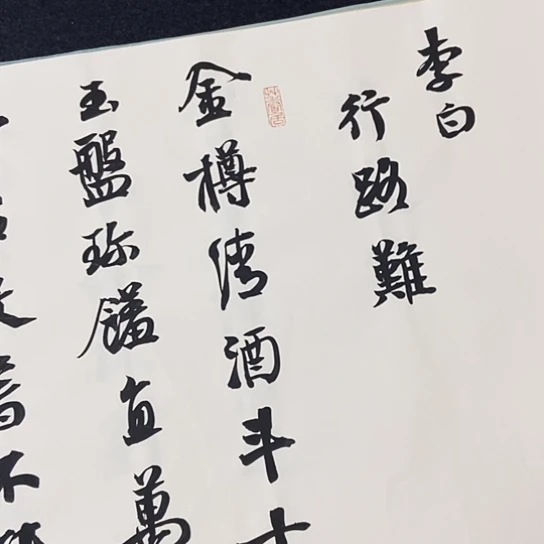 李白
行路難
金樽清酒斗十
玉盤珍饈直萬
箸不